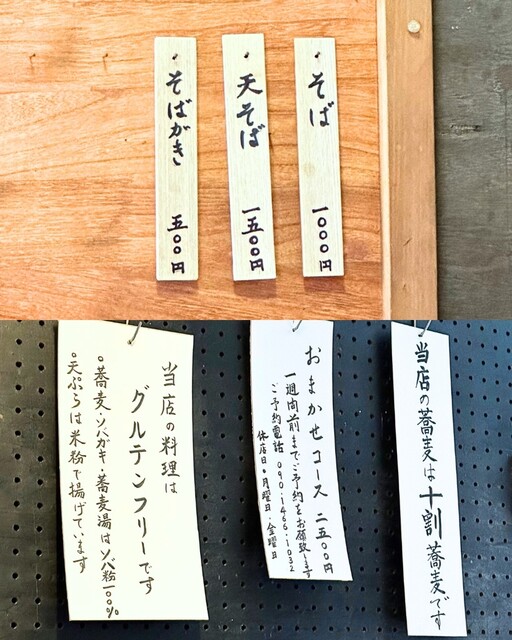 そば 一〇〇〇円
天そば 一五〇〇円
そばがき 五〇〇円
当店の蕎麦は十割蕎麦です
おまかせコース 二五〇〇円
一週間前までご予約をお願致します
ご予約電話 090-1466-1032
休店日・月曜日・金曜日
当店の料理は
グルテンフリーです
○蕎麦・ソバガキ・蕎麦湯はソバ粉一〇〇%
○天ぷらは米粉で揚げています